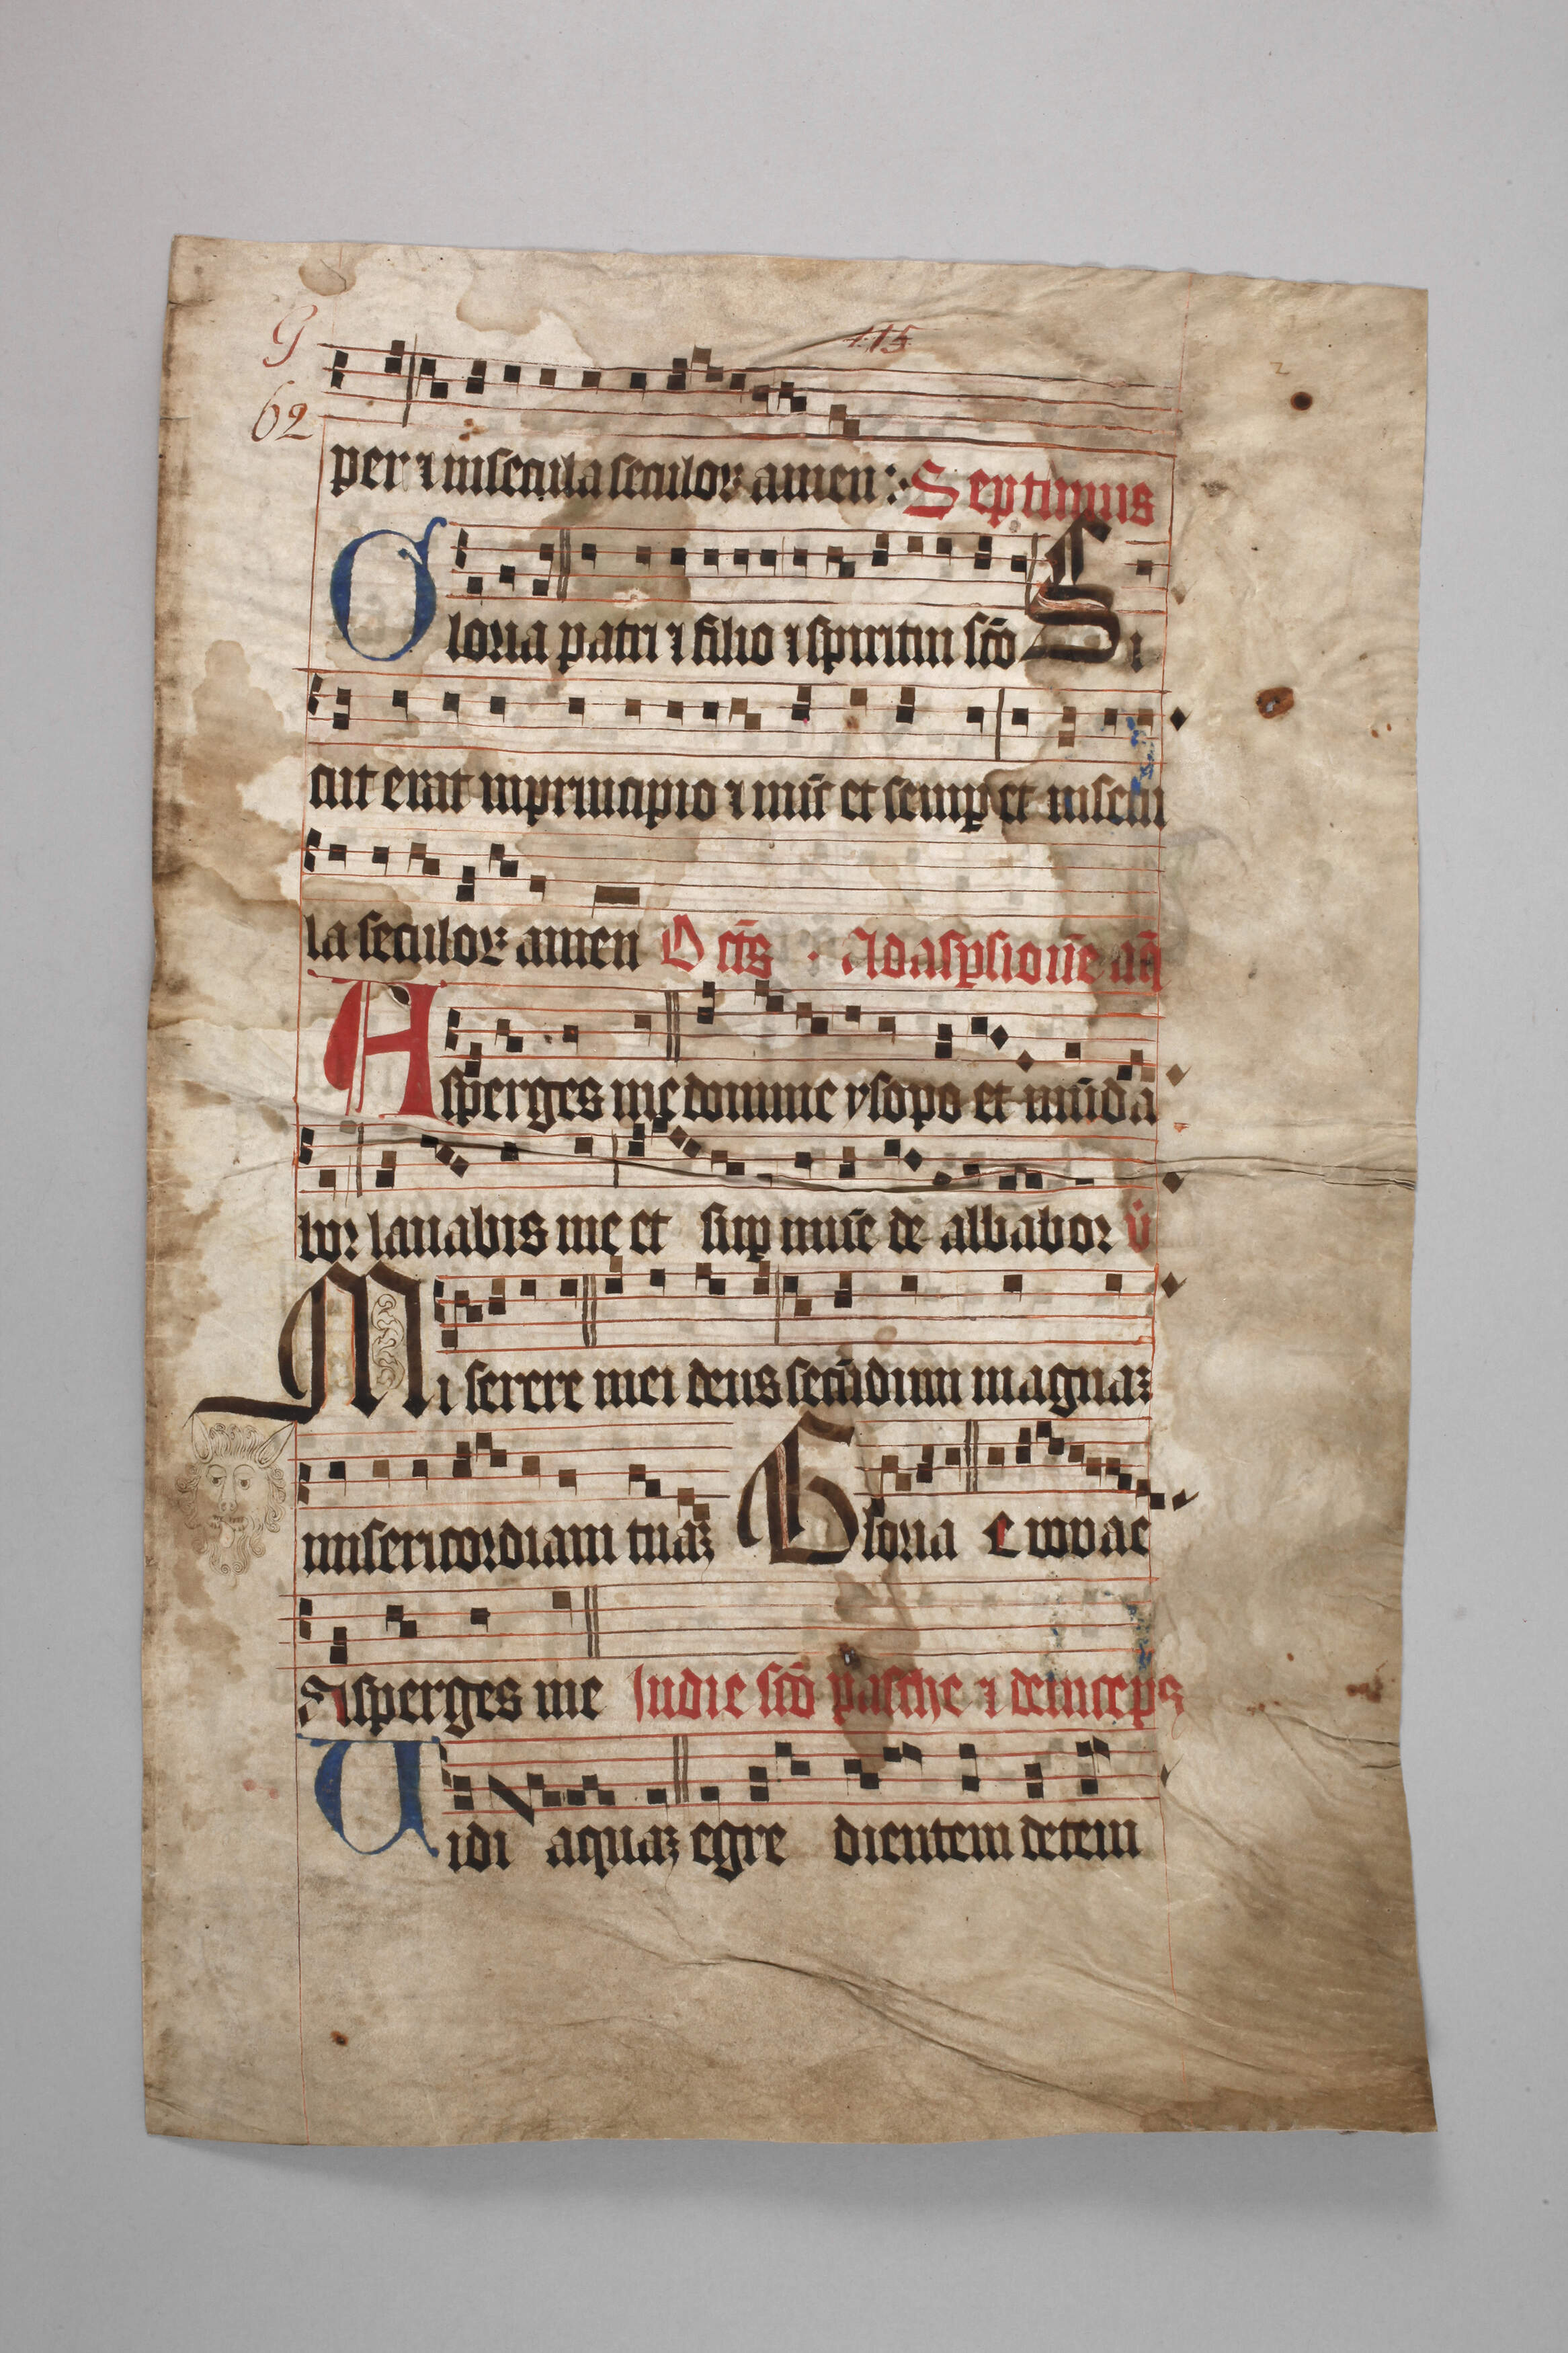 G 115
62
per ⁊ insecula seculoꝝ amen : Septimus
Gloria patri ⁊ filio ⁊ spiritui sc̄o Si
cut erat inprincipio ⁊ nūc et semꝑ et insecu
la seculoꝝ amen Oct̄s · Ad aspsione an̄
Asperges me domine ysopo et mūda
bor lauabis me et suꝑ niuē de albabor v̄
Miserere mei deus secūdum magnaꝫ
misericordiam tuaꝫ Gloria Euouae
Asperges me In die sc̄o pasche ⁊ deinceps
Uidi aquaꝫ egre dientem detem